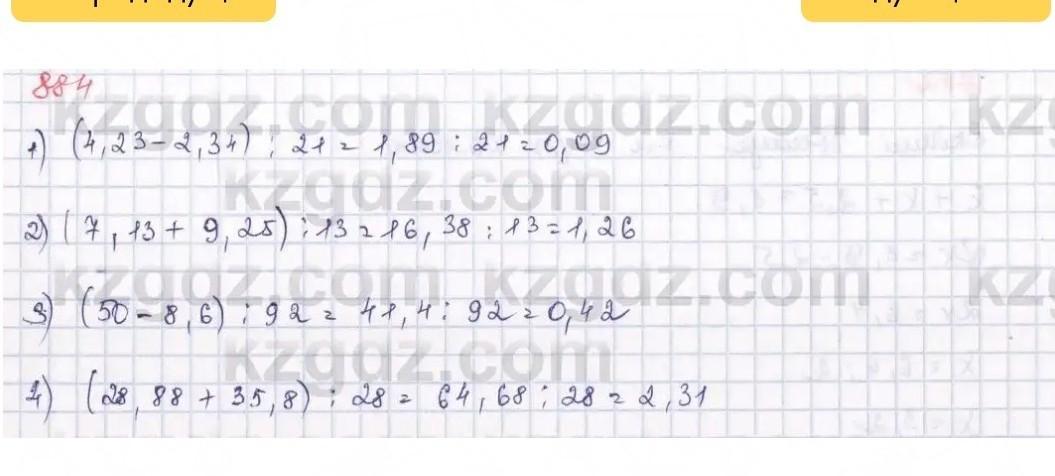 884
1) (4,23-2,34) : 21 = 1,89 : 21 = 0,09
2) (7,13 + 9,25) : 13 = 16,38 : 13 = 1,26
3) (50 - 8,6) : 92 = 41,4 : 92 = 0,42
4) (28,88 + 35,8) : 28 = 64,68 : 28 = 2,31
kzgdz.com kzgdz.com
kzgdz.com
kzgdz.com kzgdz.com
kzgdz.com